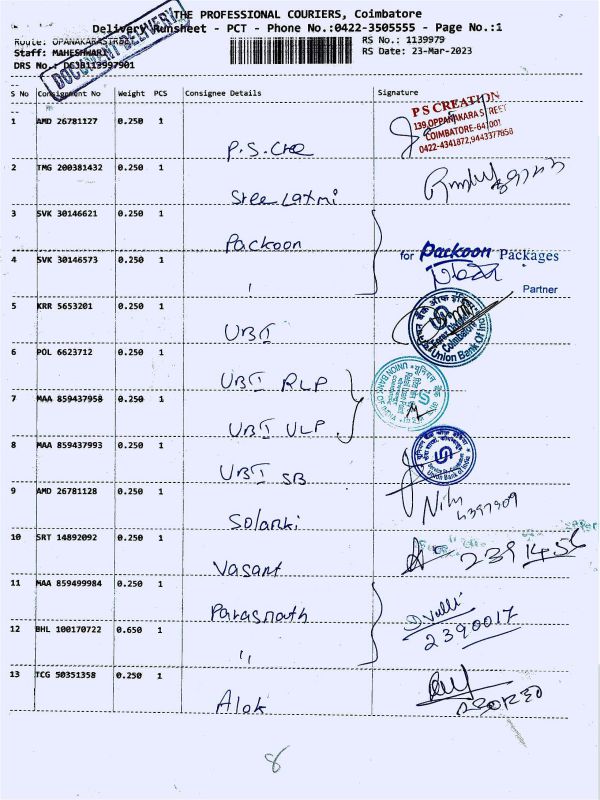 THE PROFESSIONAL COURIERS, Coimbatore
Delivery Runsheet - PCT - Phone No.:0422-3505555 - Page No.:1
DOCUMENT DELIVERY
Route: OPANAKARASTREET
RS No.: 1139979
Staff: MAHESHWARI
RS Date: 23-Mar-2023
DRS No.:
S No Consignment No Weight PCS Consignee Details Signature
1 AMD 26781127 0.250 1
P.S. Cre
P S CREATION
139, OPPANAKARA STREET
COIMBATORE-641001
0422-4341872, 9443377858
2 TMG 200381432 0.250 1
Sree Laxmi
3 SVK 30146621 0.250 1
Packoon
4 SVK 30146573 0.250 1
"
for Packoon Packages
Partner
5 KRR 5653201 0.250 1
UBI
Union Bank Of India
6 POL 6623712 0.250 1
UBI RLP
UNION BANK OF INDIA
7 MAA 859437958 0.250 1
UBI ULP
8 MAA 859437993 0.250 1
UBI SB
Union Bank of India
9 AMD 26781128 0.250 1
Solanki
10 SRT 14892092 0.250 1
Vasant
2391456
11 MAA 859499984 0.250 1
Parasnath
D. Valli
2390017
12 BHL 100170722 0.650 1
"
13 TCG 50351358 0.250 1
Alok
8